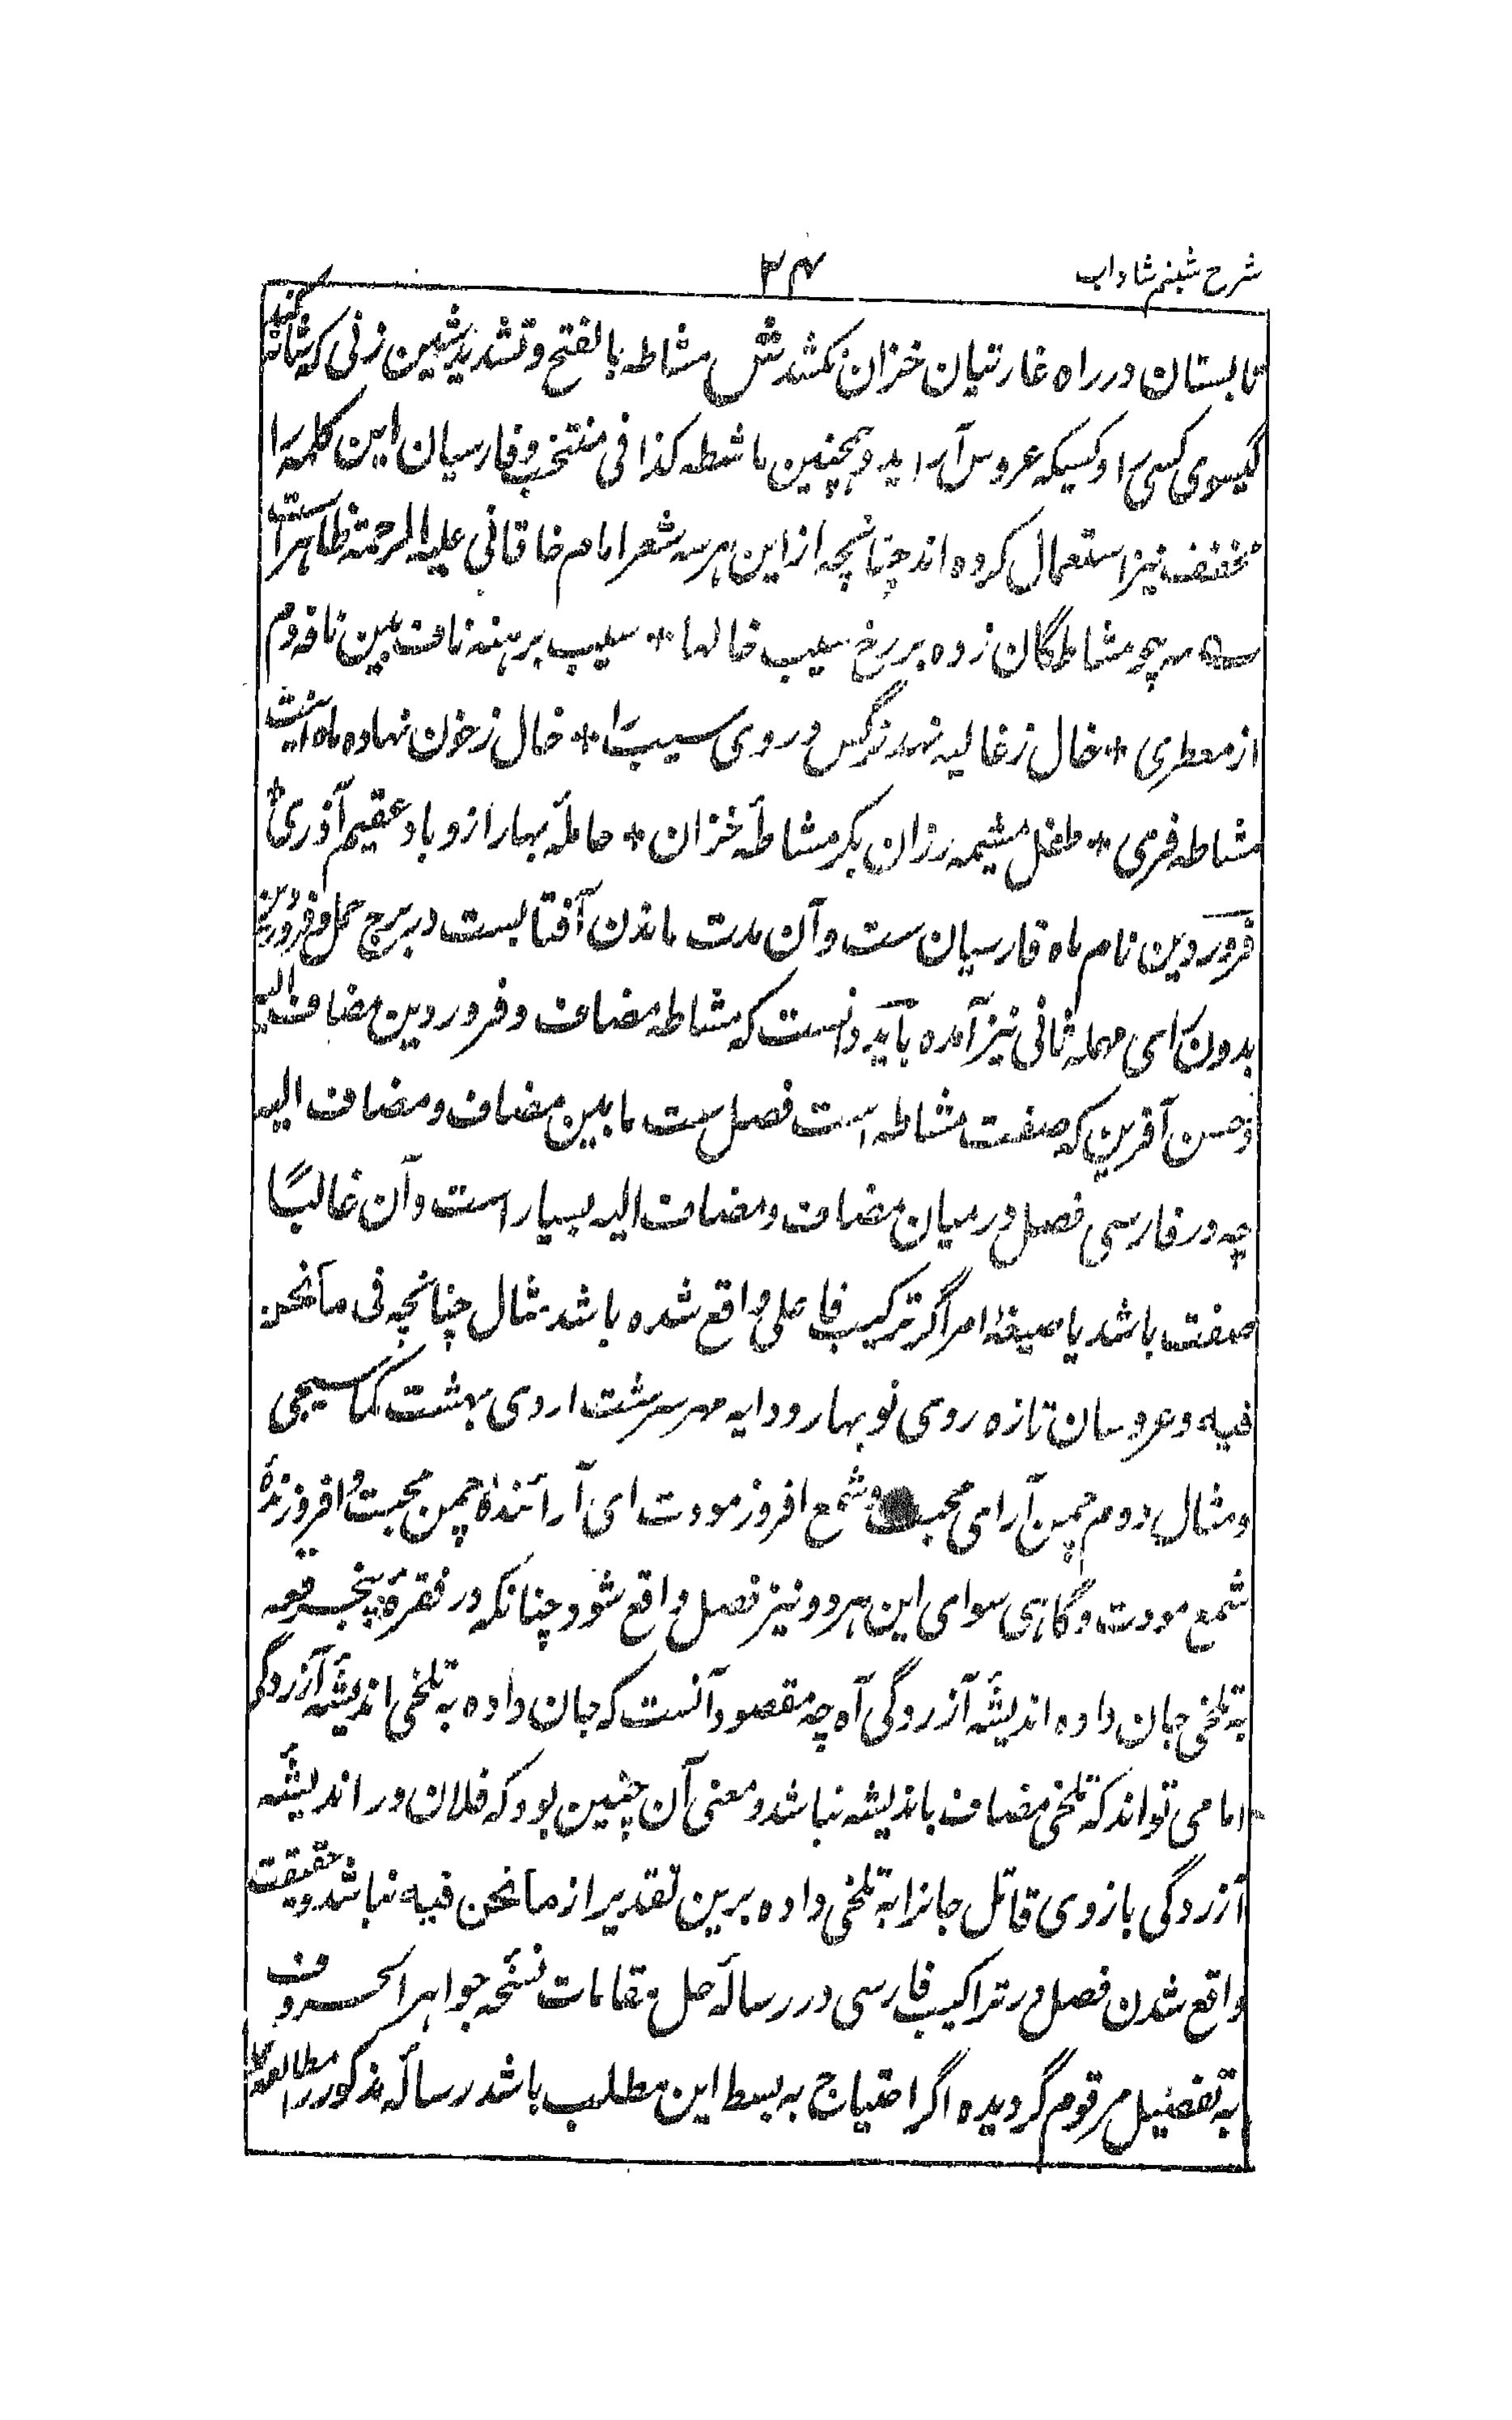 شرح شبنم شاداب
۳۴
تابستان در راه غارتیان خزان نکشد ش مشاطه بالفتح و تشدید شین زنی که شانه کند
گیسوی کسی را و کسیکه عروس آراید و همچنین ماشطه کذا فی منتخب و فارسیان این کلمه را
مخفف نیز استعمال کرده اند چنانچه ازاین هرسه شعر امام خاقانی علیه الرحمته ظاهراست
سه چو مشاطگان زده بر رخ سیب خالها * سیب برهنه ناف بین نافه دم
از معطری * خال ز غالیه نهد نرگس و روی سیب را * خال ز خون نهاده ماه اینت
مشاطه فری * طفل مشیمه رزان بکر مشاطهٔ خزان * حاملهٔ بهار ازو باد عقیم آذری *
فروردین نام ماه فارسیان ست و آن مدت ماندن آفتابست در برج حمل و فرودین
بدون رای مهمله ثانی نیز آمده باید دانست که مشاطه مضاف و فروردین مضاف الیه
و حسن آفرین که صفت مشاطه است فصل ست مابین مضاف و مضاف الیه
چه در فارسی فصل در میان مضاف و مضاف الیه بسیار است و آن غالباً
صفت باشد یا صیغهٔ امر اگر ترکیب فاعلی واقع شده باشد مثال چنانچه فی مانحن
فیه و عروسان تازه روی نوبهار و دایه مهر سرشت اردی بهشت کماسیجی
و مثال دوم چمن آرای محبت و شمع افروز مودت ای آرائندهٔ چمن محبت و افروزندهٔ
شمع مودت و گاهی سوای این هردو نیز فصل واقع شود چنانکه در فقرهٔ پنجرقعه
به تلخی جان داده اندیشهٔ آزردگی آه چه مقصود آنست که جان داده به تلخی اندیشهٔ آزردگی
اما می تواند که تلخی مضاف باندیشه نباشد و معنی آن چنین بود که فلان در اندیشهٔ
آزردگی بازوی قاتل جانرا به تلخی داده برین تقدیر از مانحن فیه نباشد و حقیقت
واقع شدن فصل در تراکیب فارسی در رسالهٔ حل مقامات نسخهٔ جواهر الحروف
به تفصیل مرقوم گردیده اگر احتیاج به بسط این مطلب باشد رسالهٔ مذکور را مطالعه